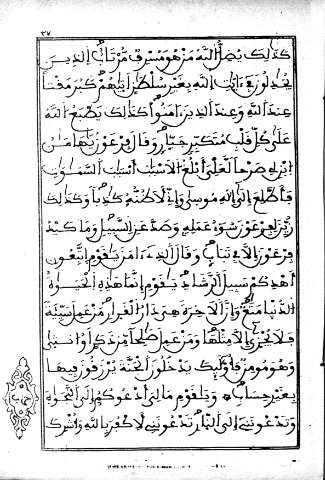 ٣٧
كَذَٰلِكَ يُضِلُّ اللَّهُ مَنْ هُوَ مُسْرِفٌ مُّرْتَابٌ الَّذِينَ
يُجَٰدِلُونَ فِي ءَايَٰتِ اللَّهِ بِغَيْرِ سُلْطَٰنٍ أَتَىٰهُمْ كَبُرَ مَقْتًا
عِندَ اللَّهِ وَعِندَ الَّذِينَ ءَامَنُوا كَذَٰلِكَ يَطْبَعُ اللَّهُ
عَلَىٰ كُلِّ قَلْبِ مُتَكَبِّرٍ جَبَّارٍ وَقَالَ فِرْعَوْنُ يَٰهَٰمَٰنُ
ابْنِ لِي صَرْحًا لَّعَلِّي أَبْلُغُ الْأَسْبَٰبَ أَسْبَٰبَ السَّمَٰوَٰتِ
فَأَطَّلِعُ إِلَىٰ إِلَٰهِ مُوسَىٰ وَإِنِّي لَأَظُنُّهُ كَٰذِبًا وَكَذَٰلِكَ
زُيِّنَ لِفِرْعَوْنَ سُوءُ عَمَلِهِ وَصَدَّ عَنِ السَّبِيلِ وَمَا كَيْدُ
فِرْعَوْنَ إِلَّا فِي تَبَابٍ وَقَالَ الَّذِي ءَامَنَ يَٰقَوْمِ اتَّبِعُونِ
أَهْدِكُمْ سَبِيلَ الرَّشَادِ يَٰقَوْمِ إِنَّمَا هَٰذِهِ الْحَيَوٰةُ
الدُّنْيَا مَتَٰعٌ وَإِنَّ الْأَخِرَةَ هِيَ دَارُ الْقَرَارِ مَنْ عَمِلَ سَيِّئَةً
فَلَا يُجْزَىٰ إِلَّا مِثْلَهَا وَمَنْ عَمِلَ صَٰلِحًا مِّن ذَكَرٍ أَوْ أُنثَىٰ
وَهُوَ مُومِنٌ فَأُولَٰئِكَ يَدْخُلُونَ الْجَنَّةَ يُرْزَقُونَ فِيهَا
بِغَيْرِ حِسَابٍ وَيَٰقَوْمِ مَا لِيَ أَدْعُوكُمْ إِلَى النَّجَوٰةِ
وَتَدْعُونَنِي إِلَى النَّارِ تَدْعُونَنِي لِأَكْفُرَ بِاللَّهِ وَأُشْرِكَ